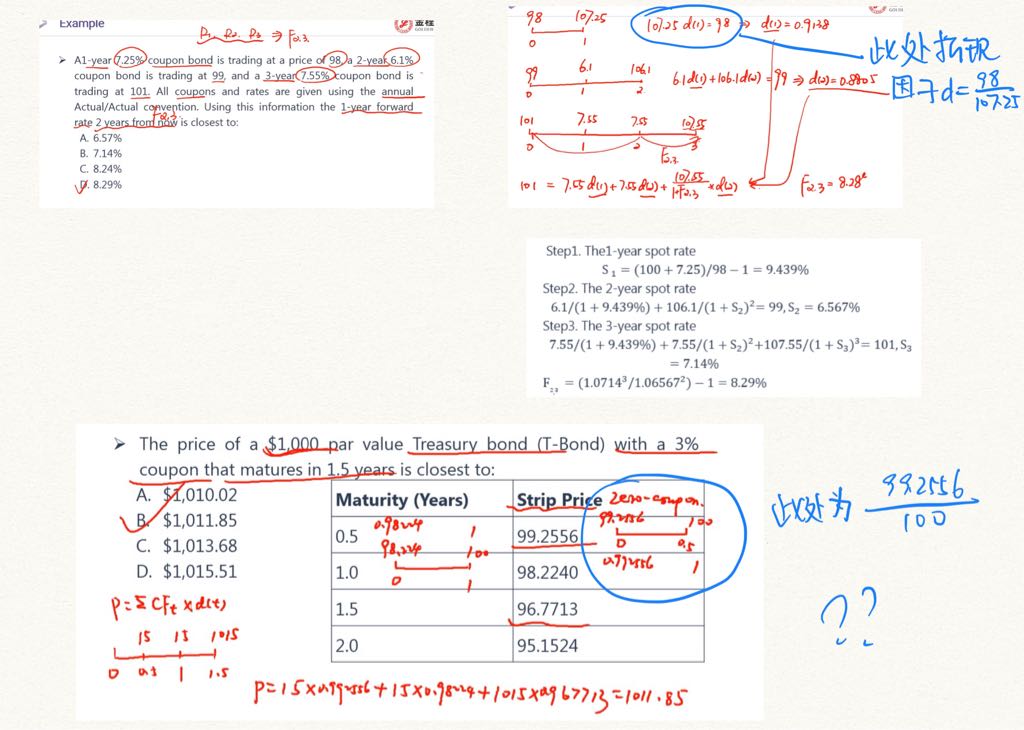 Example
P₁. P₂. P₃ ⇒ F2.3.
金程
GOLDEN
➢ A1-year 7.25% coupon bond is trading at a price of 98, a 2-year 6.1%
coupon bond is trading at 99, and a 3-year 7.55% coupon bond is
trading at 101. All coupons and rates are given using the annual
Actual/Actual convention. Using this information the 1-year forward
F2.3.
rate 2 years from now is closest to:
A. 6.57%
B. 7.14%
C. 8.24%
D. 8.29%
98 107.25
0 1
107.25 d(1) = 98 ⇒ d(1) = 0.9138
99 6.1 106.1
0 1 2
6.1d(1)+106.1d(2) = 99 ⇒ d(2) = 0.8805
101 7.55 7.55 107.55
0 1 2 3
F2.3.
101 = 7.55 d(1) + 7.55 d(2) + 107.55/1+F2.3 × d(2)
F2.3 = 8.28%
此处折现
因子d = 98/107.25
Step1. The1-year spot rate
S₁ = (100 + 7.25)/98 − 1 = 9.439%
Step2. The 2-year spot rate
6.1/(1 + 9.439%) + 106.1/(1 + S₂)²= 99, S₂ = 6.567%
Step3. The 3-year spot rate
7.55/(1 + 9.439%) + 7.55/(1 + S₂)²+107.55/(1 + S₃)³= 101, S₃
= 7.14%
F₂,₃ = (1.0714³/1.06567²) − 1 = 8.29%
➢ The price of a $1,000 par value Treasury bond (T-Bond) with a 3%
coupon that matures in 1.5 years is closest to:
A. $1,010.02
B. $1,011.85
C. $1,013.68
D. $1,015.51
P = Σ CFt × d(t)
15 15 1015
0 0.5 1 1.5
Maturity (Years) Strip Price
0.5 99.2556
1.0 98.2240
1.5 96.7713
2.0 95.1524
0.98224 1
98.224 100
0 1
zero-coupon.
99.2556 100
0 0.5
0.992556 1
P = 15×0.992556 + 15×0.98224 + 1015×0.967713 = 1011.85
此处为 99.2556/100
??